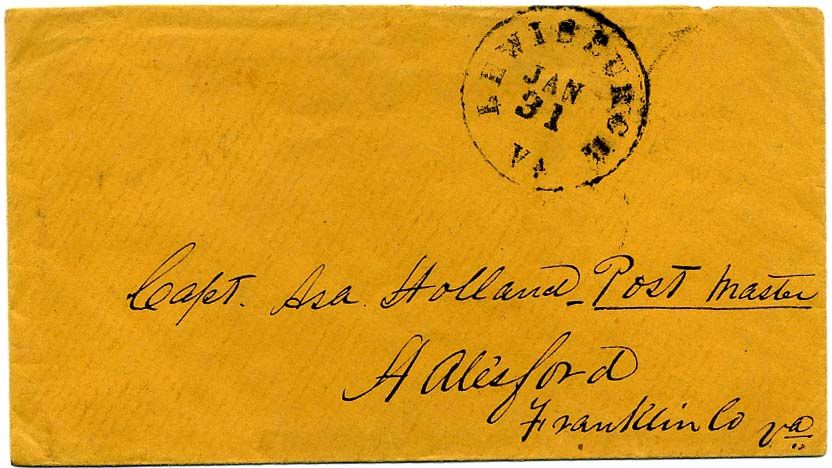 LEWISBURGH
JAN
31
VA
Capt. Asa Holland - Post Master
Halesford
Franklin Co va